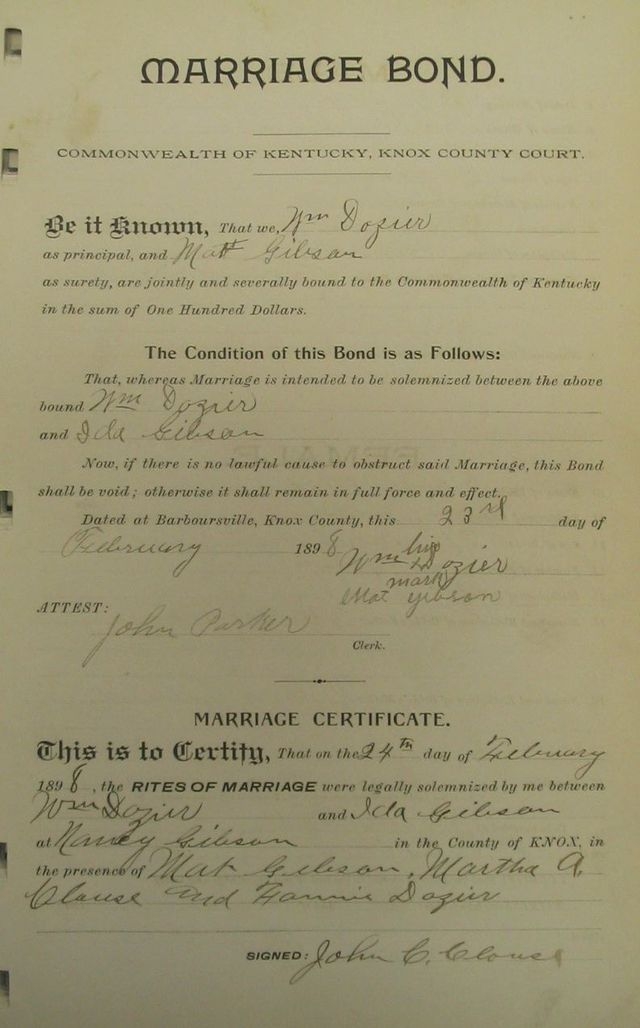 MARRIAGE BOND.
COMMONWEALTH OF KENTUCKY, KNOX COUNTY COURT.
Be it Known, That we, Wm Dozier
as principal, and Matt Gibson
as surety, are jointly and severally bound to the Commonwealth of Kentucky
in the sum of One Hundred Dollars.
The Condition of this Bond is as Follows:
That, whereas Marriage is intended to be solemnized between the above
bound Wm Dozier
and Ida Gibson
Now, if there is no lawful cause to obstruct said Marriage, this Bond
shall be void; otherwise it shall remain in full force and effect.
Dated at Barboursville, Knox County, this 23rd day of
February 1898
Wm his Dozier
mark
Mat Gibson
ATTEST:
John Parker
Clerk.
MARRIAGE CERTIFICATE.
This is to Certify, That on the 24th day of February
1898, the RITES OF MARRIAGE were legally solemnized by me between
Wm Dozier and Ida Gibson
at Nancy Gibson in the County of KNOX, in
the presence of Mat Gibson, Martha A.
Clouse and Fannie Dozier
SIGNED: John C. Clouse